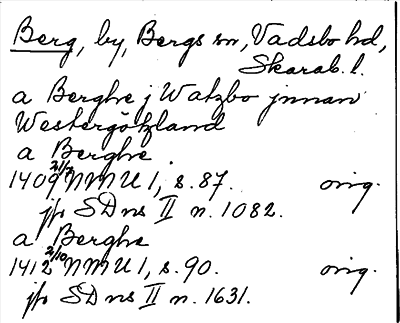 Berg, by, Bergs sn, Vadsbo hd,
Skarab. l.
a Berghe j Watzbo jnnan
Westergötzland
a Berghe
1409 21/2 NMU 1, s. 87. orig.
jfr SDns II n. 1082.
a Berghe
1412 2/10 NMU 1, s. 90. orig.
jfr SDns II n. 1631.